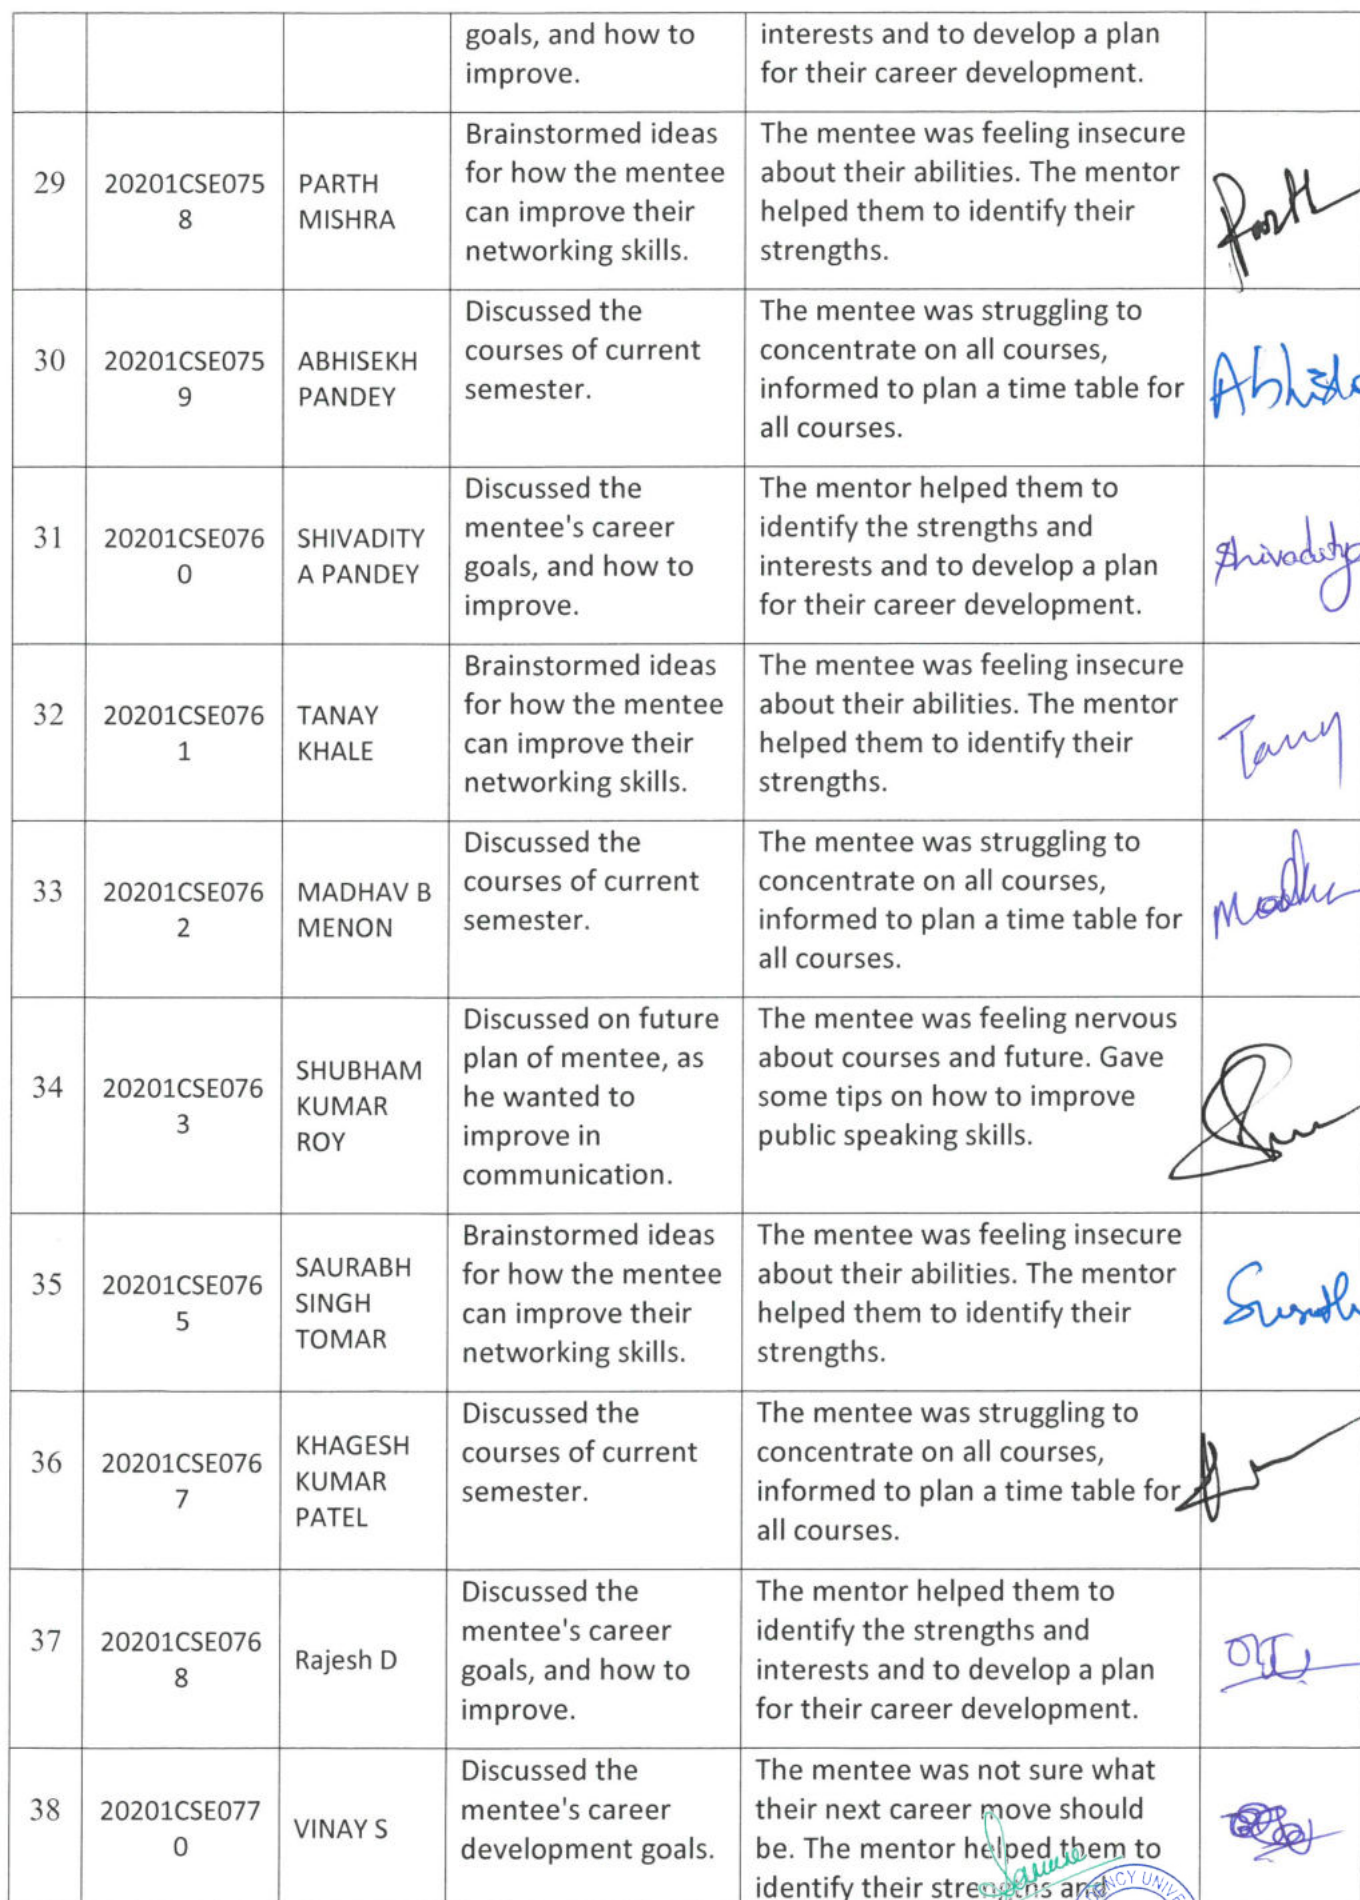 goals, and how to
improve.
interests and to develop a plan
for their career development.
29
20201CSE075
8
PARTH
MISHRA
Brainstormed ideas
for how the mentee
can improve their
networking skills.
The mentee was feeling insecure
about their abilities. The mentor
helped them to identify their
strengths.
Parth
30
20201CSE075
9
ABHISEKH
PANDEY
Discussed the
courses of current
semester.
The mentee was struggling to
concentrate on all courses,
informed to plan a time table for
all courses.
31
20201CSE076
0
SHIVADITY
A PANDEY
Discussed the
mentee's career
goals, and how to
improve.
The mentor helped them to
identify the strengths and
interests and to develop a plan
for their career development.
Shivaditya
32
20201CSE076
1
TANAY
KHALE
Brainstormed ideas
for how the mentee
can improve their
networking skills.
The mentee was feeling insecure
about their abilities. The mentor
helped them to identify their
strengths.
Tanay
33
20201CSE076
2
MADHAV B
MENON
Discussed the
courses of current
semester.
The mentee was struggling to
concentrate on all courses,
informed to plan a time table for
all courses.
34
20201CSE076
3
SHUBHAM
KUMAR
ROY
Discussed on future
plan of mentee, as
he wanted to
improve in
communication.
The mentee was feeling nervous
about courses and future. Gave
some tips on how to improve
public speaking skills.
35
20201CSE076
5
SAURABH
SINGH
TOMAR
Brainstormed ideas
for how the mentee
can improve their
networking skills.
The mentee was feeling insecure
about their abilities. The mentor
helped them to identify their
strengths.
36
20201CSE076
7
KHAGESH
KUMAR
PATEL
Discussed the
courses of current
semester.
The mentee was struggling to
concentrate on all courses,
informed to plan a time table for
all courses.
37
20201CSE076
8
Rajesh D
Discussed the
mentee's career
goals, and how to
improve.
The mentor helped them to
identify the strengths and
interests and to develop a plan
for their career development.
38
20201CSE077
0
VINAY S
Discussed the
mentee's career
development goals.
The mentee was not sure what
their next career move should
be. The mentor helped them to
identify their strengths and